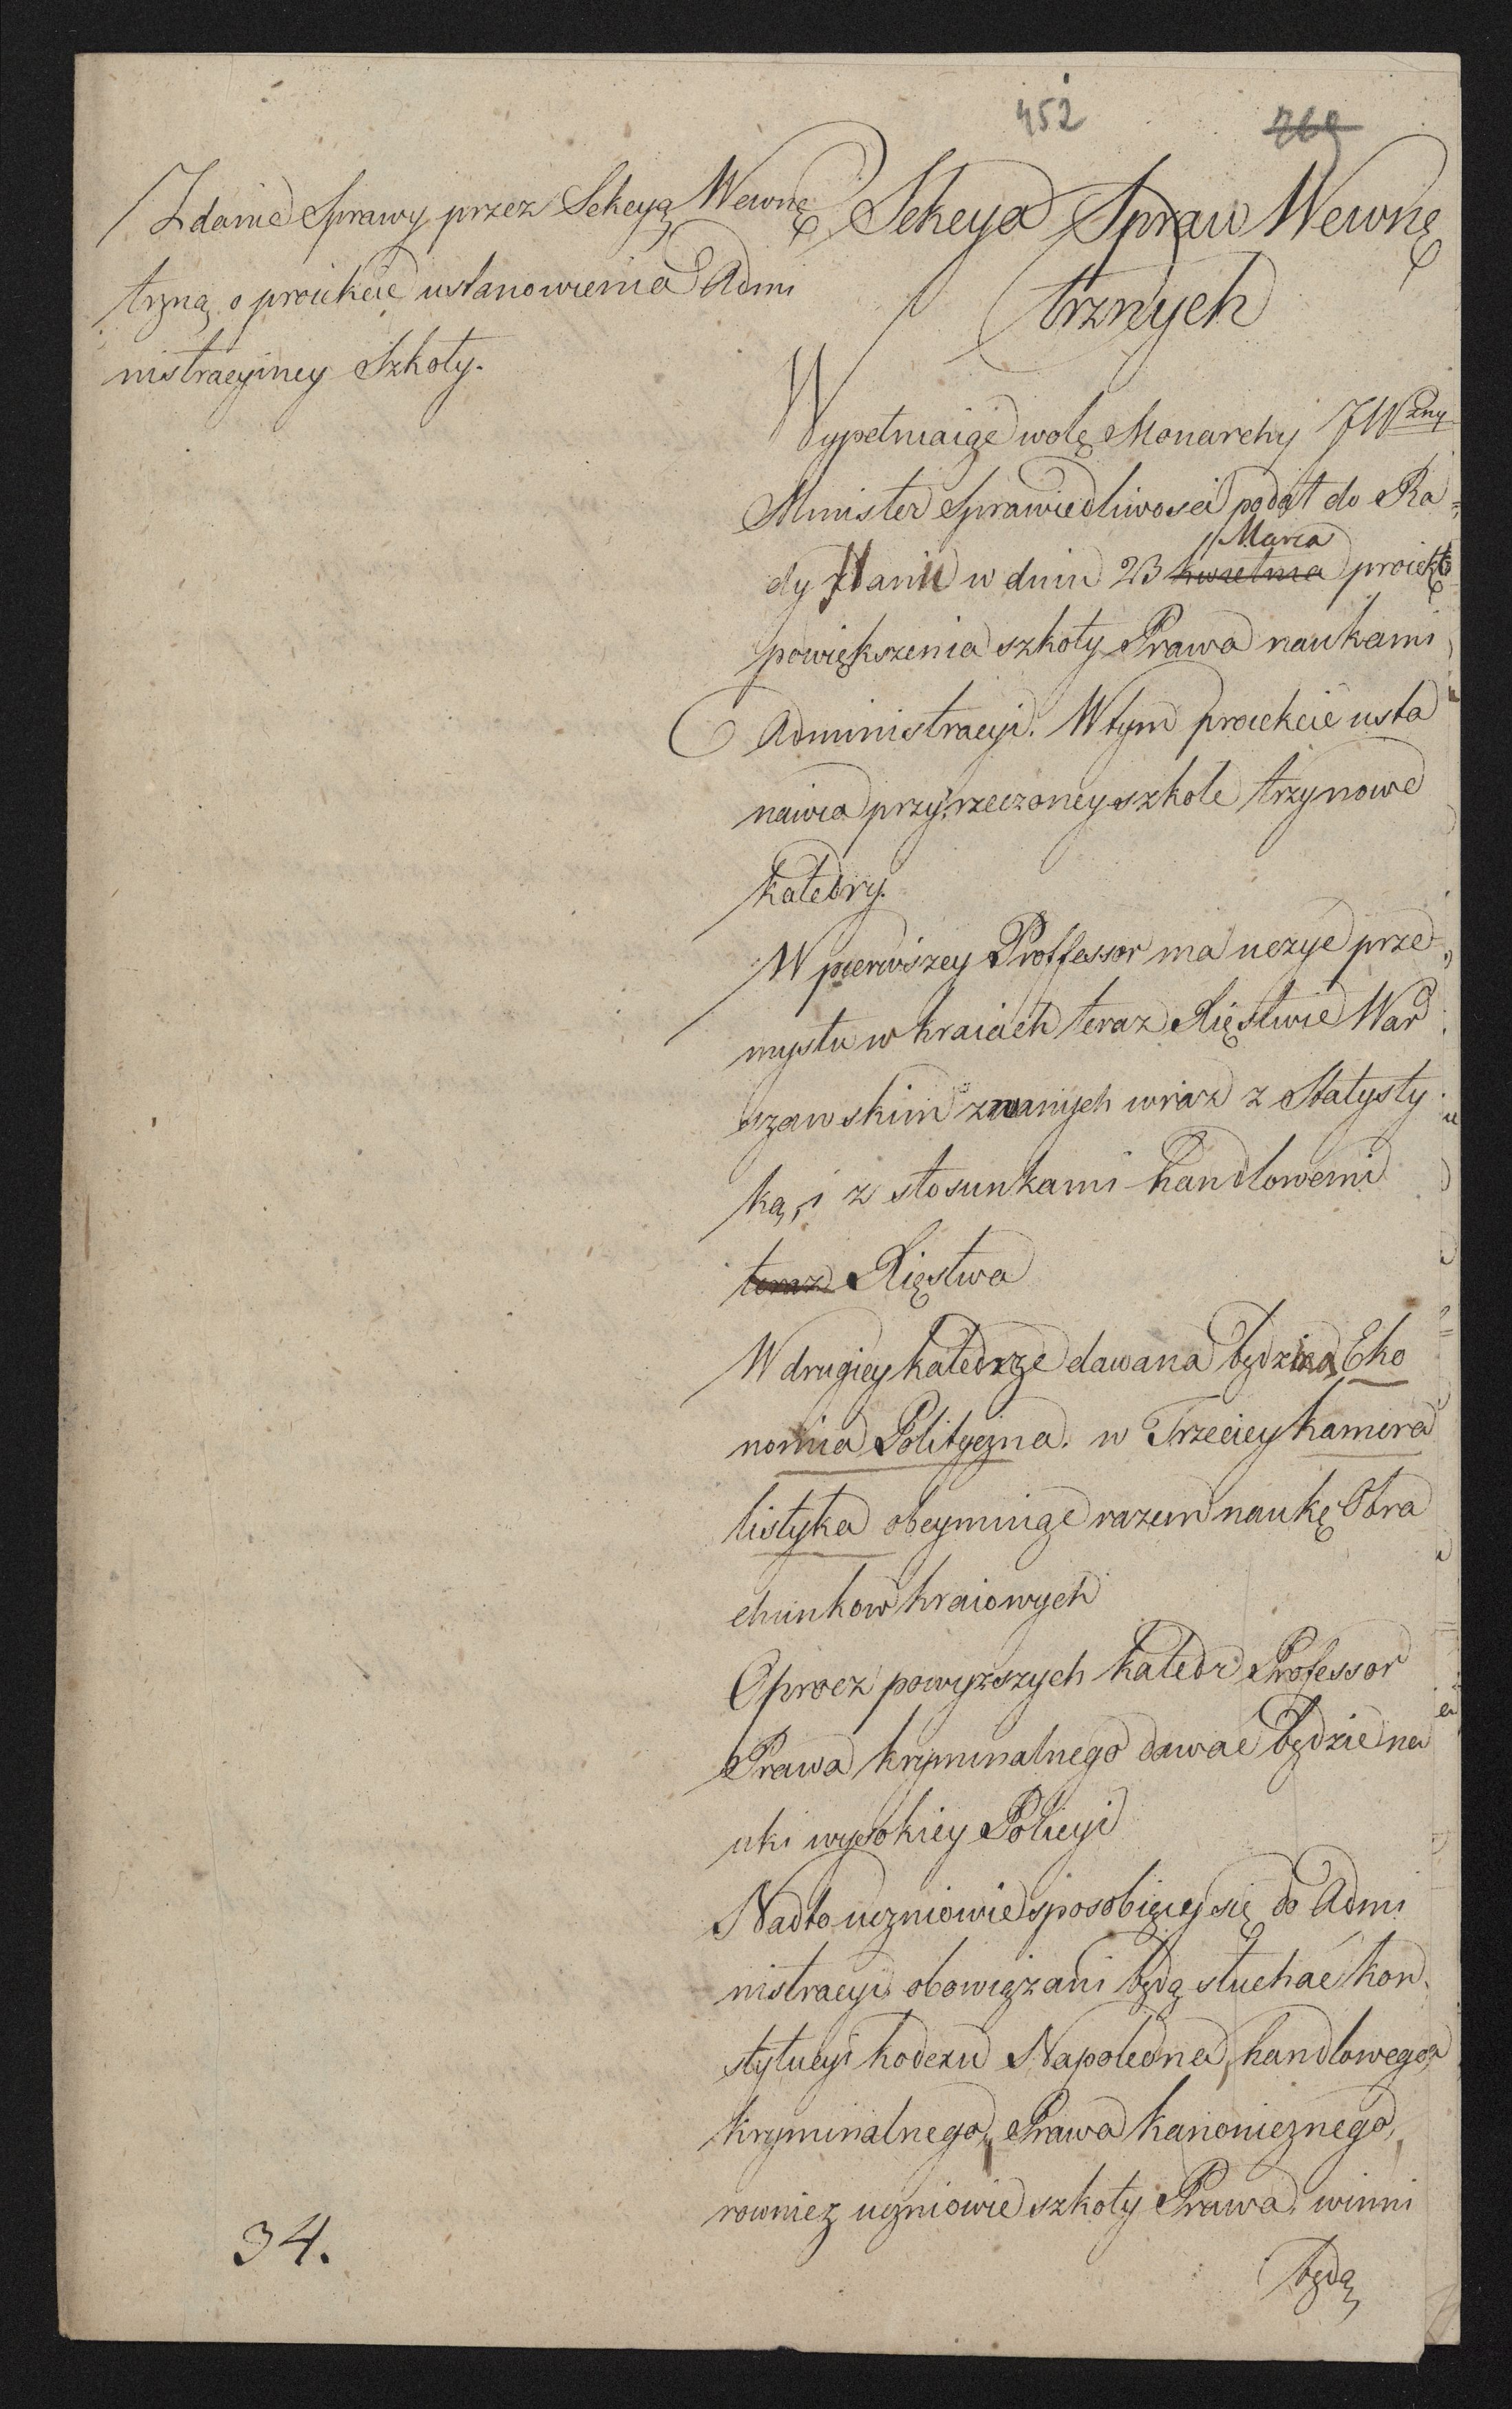 452
Zdanie Sprawy przez Sekcyą Wewnę
trzną o proiekcie ustanowienia Admi
nistracyiney Szkoły.
Sekcya Spraw Wewnę
trznych
Wypełniaiąc wolę Monarchy JWzny
Minister Sprawiedliwości podał do Ra=
Marca
dy Stanu w dniu 23 kwietnia proiekt
powiększenia szkoły Prawa naukami
Administracyi. W tym proiekcie usta
nawia przy rzeczoney szkole trzy nowe
katedry.
W pierwszey Proffessor ma uczyć prze=
mysłu w kraiach teraz Xięstwie War
szawskim zwanych wraz z Statysty
ką, i z stosunkami handlowemi
teraz Xięstwa
W drugiey katedrze dawana będzie Eko
nomia Polityczna. w Trzeciey kamera
listyka obeymuiąc razem naukę Obra
chunkow kraiowych
Oprocz powyższych katedr Professor
Prawa kryminalnego dawać będzie na
uki wysokiey Policyi
Nadto uczniowie sposobiący się do Admi
nistracyi obowiązani będą słuchać kon
stytucyi kodexu Napoleona, handlowego,
kryminalnego, Prawa kanonicznego,
rownież uczniowie szkoły Prawa winni
będą
34.